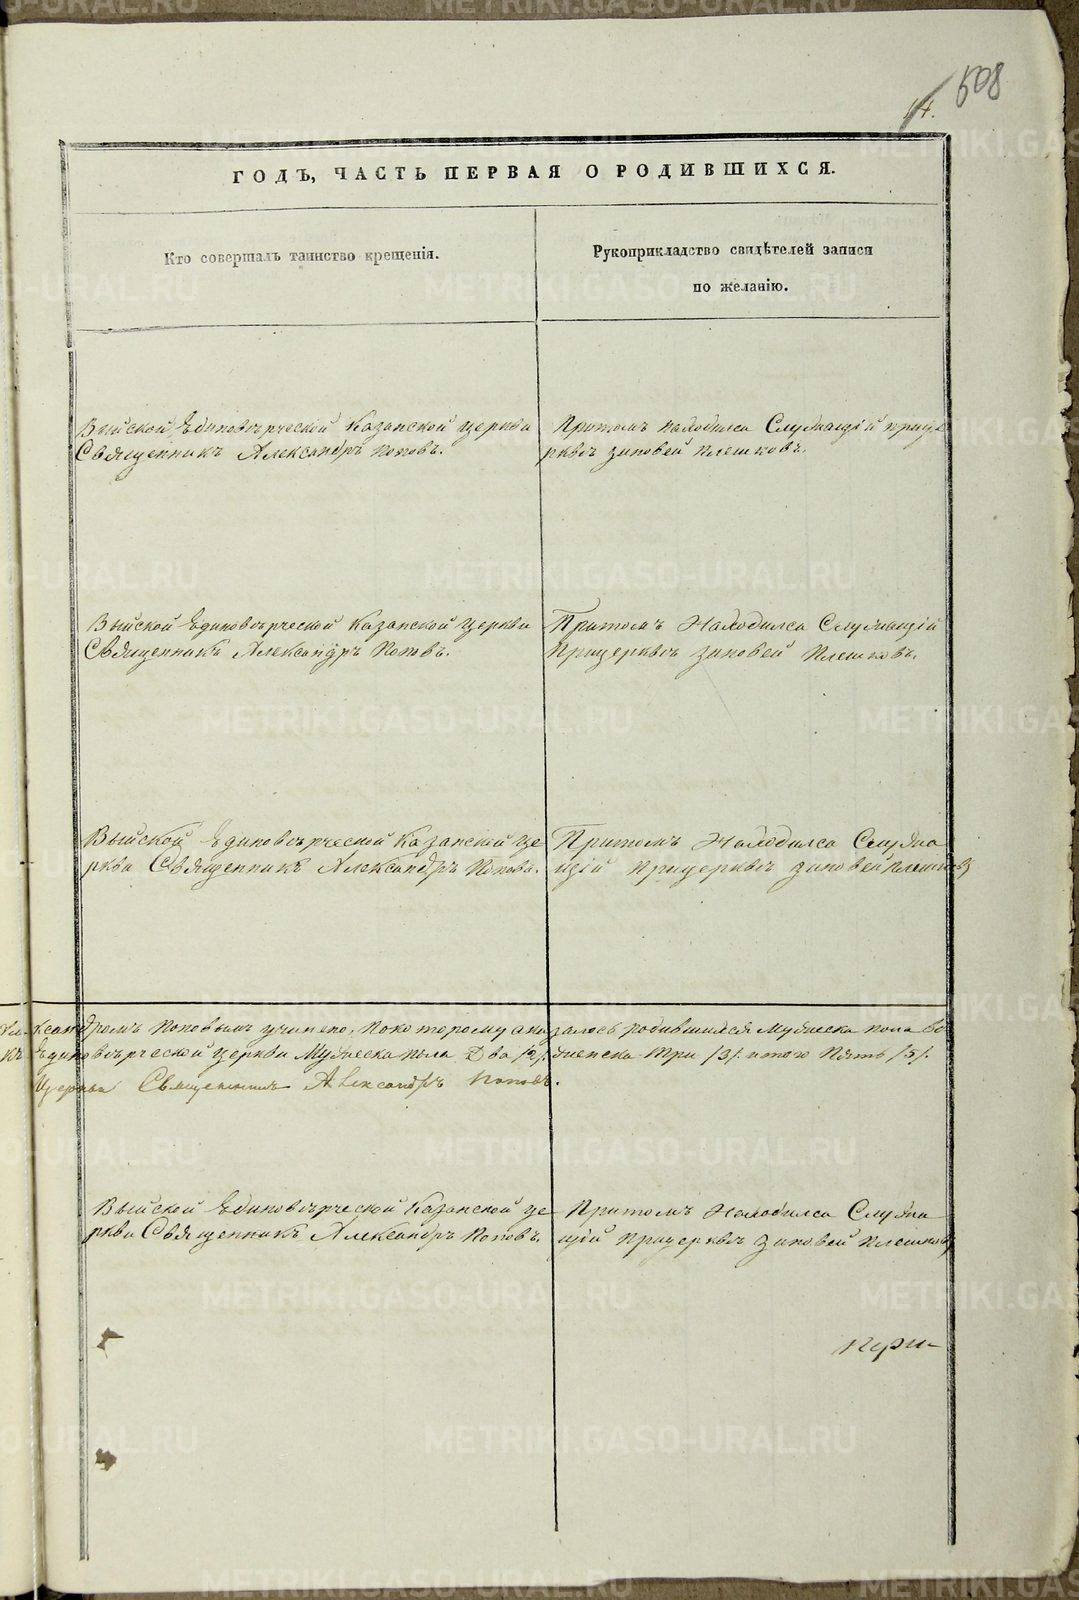 508
14.
ГОДЪ, ЧАСТЬ ПЕРВАЯ О РОДИВШИХСЯ.
Кто совершалъ таинство крещенія.
Рукоприкладство свидѣтелей записи
по желанію.
Выйской Единовѣрческой Казанской церкви
Священникъ Александръ Поповъ.
Притомъ находился Служащій прице
рквѣ Зиновей Плешковъ.
Выйской Единовѣрческой Казанской церкви
Священникъ Александръ Поповъ.
Притомъ Находился Служащій
Прицерквѣ Зиновей Плешковъ.
Выйской Единовѣрческой Казанской це
ркви Священникъ Александръ Поповъ.
Притомъ Находился Служа
щій Прицерквѣ Зиновей Плешковъ
ксандромъ Поповымъ учинено, по которому оказалось родившихся Мужеска пола
Единовѣрческой церкви Мужеска пола Два /2/. Женска три /3/. итого Пять /5/.
Церкви Священникъ Александръ Поповъ.
Выйской Единовѣрческой Казанской це
ркви Священникъ Александръ Поповъ.
Притомъ Находился Служа
щій Прицерквѣ Зиновей Плешковъ
METRIKI.GASO-URAL.RU